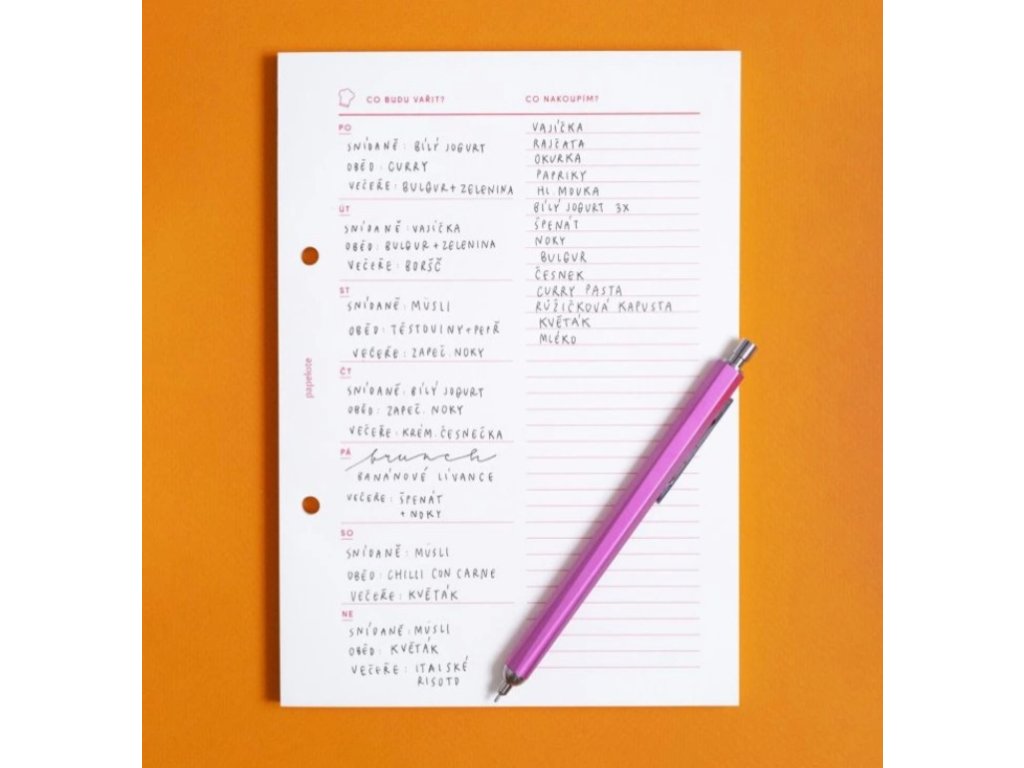 CO BUDU VAŘIT?
PO
SNÍDANĚ: BÍLÝ JOGURT
OBĚD: CURRY
VEČEŘE: BULGUR + ZELENINA
ÚT
SNÍDANĚ: VAJÍČKA
OBĚD: BULGUR + ZELENINA
VEČEŘE: BORŠČ
ST
SNÍDANĚ: MÜSLI
OBĚD: TĚSTOVINY + PEPŘ
VEČEŘE: ZAPEČ. NOKY
ČT
SNÍDANĚ: BÍLÝ JOGURT
OBĚD: ZAPEČ. NOKY
VEČEŘE: KRÉM. ČESNEČKA
PÁ
brunch
BANÁNOVÉ LÍVANCE
VEČEŘE: ŠPENÁT
+ NOKY
SO
SNÍDANĚ: MÜSLI
OBĚD: CHILLI CON CARNE
VEČEŘE: KVĚTÁK
NE
SNÍDANĚ: MÜSLI
OBĚD: KVĚTÁK
VEČEŘE: ITALSKÉ
RISOTO
CO NAKOUPÍM?
VAJÍČKA
RAJČATA
OKURKA
PAPRIKY
HL. MOUKA
BÍLÝ JOGURT 3X
ŠPENÁT
NOKY
BULGUR
ČESNEK
CURRY PASTA
RŮŽIČKOVÁ KAPUSTA
KVĚTÁK
MLÉKO
papelote